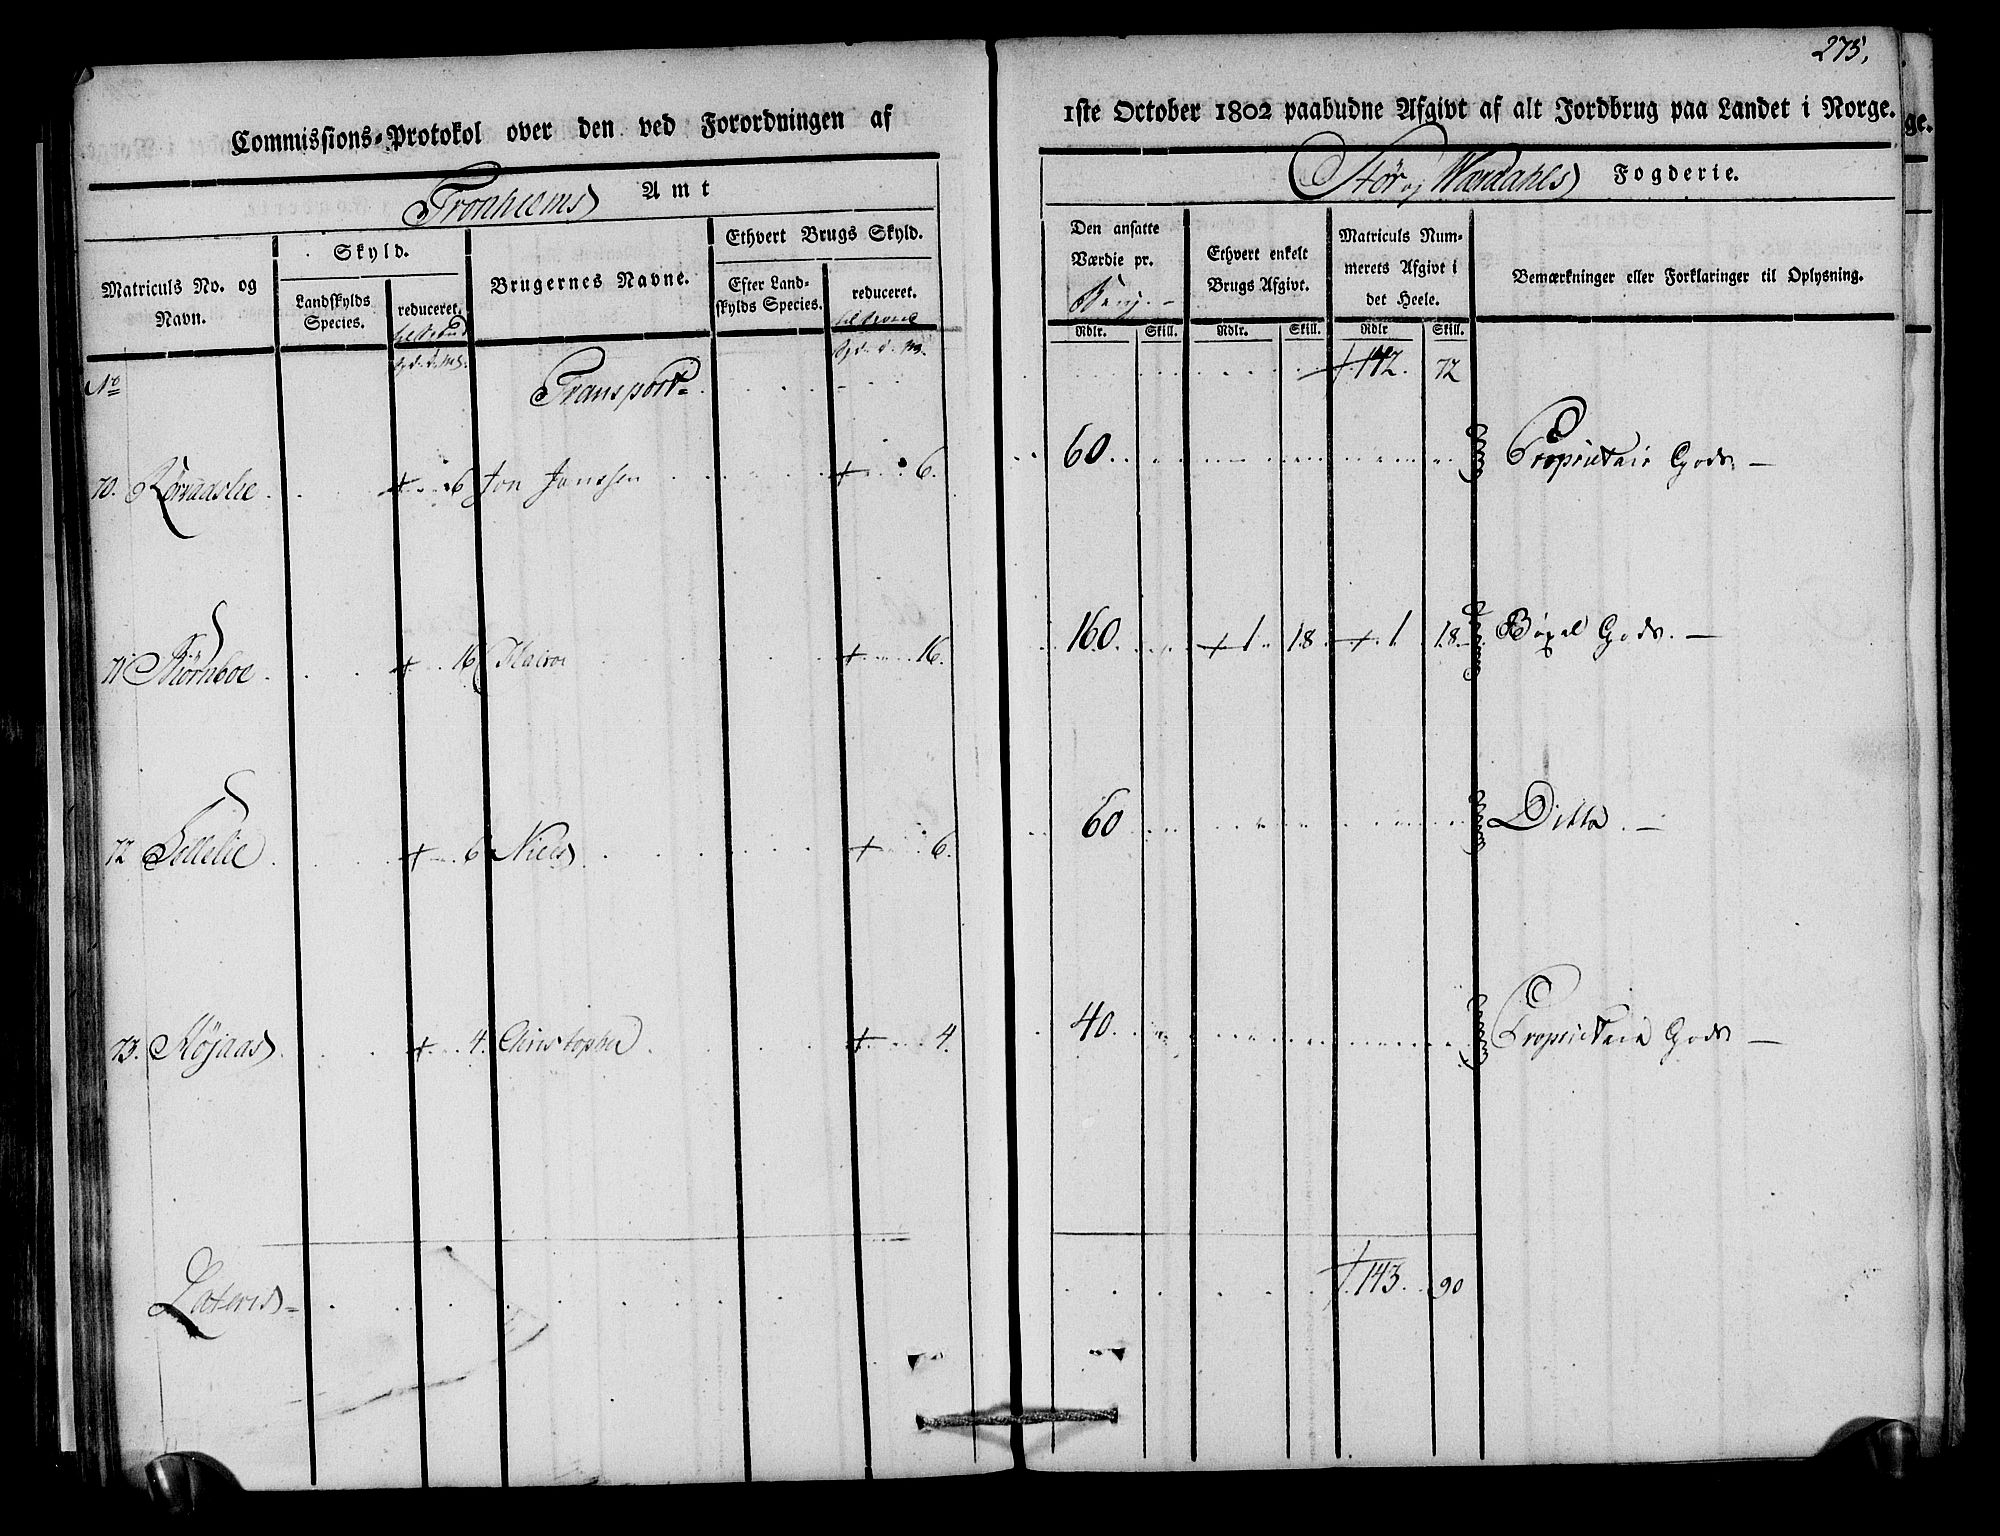 275,
Commissions-Protokol over den ved Forordningen af
1ste October 1802 paabudne Afgivt af alt Jordbrug paa Landet i Norge.
Tronhiems Amt
Stör og Wærdahls Fogderie.
Matriculs No. og Navn.
Skyld.
Landskylds Species.
reduceret.
Brugernes Navne.
Ethvert Brugs Skyld.
Efter Landskylds Species.
reduceret.
Den ansatte Værdie pr.
Ethvert enkelt Brugs Afgivt.
Matriculs Nummerets Afgivt i det Heele.
Bemærkninger eller Forklaringer til Oplysning.
Rdlr. Skill. Rdlr. Skill. Rdlr Skill.
No Transport 142. 72
70. 6 Jon Janssen 6. 60. Proprietair Gods
71 Biörnboe 16 16. 160. 1. 18. 1 18. Gods.
72 6 Niels 6. 60 Ditto
73. 4. Christopher 4. 40. Proprietair Gods
Lateris 143. 90